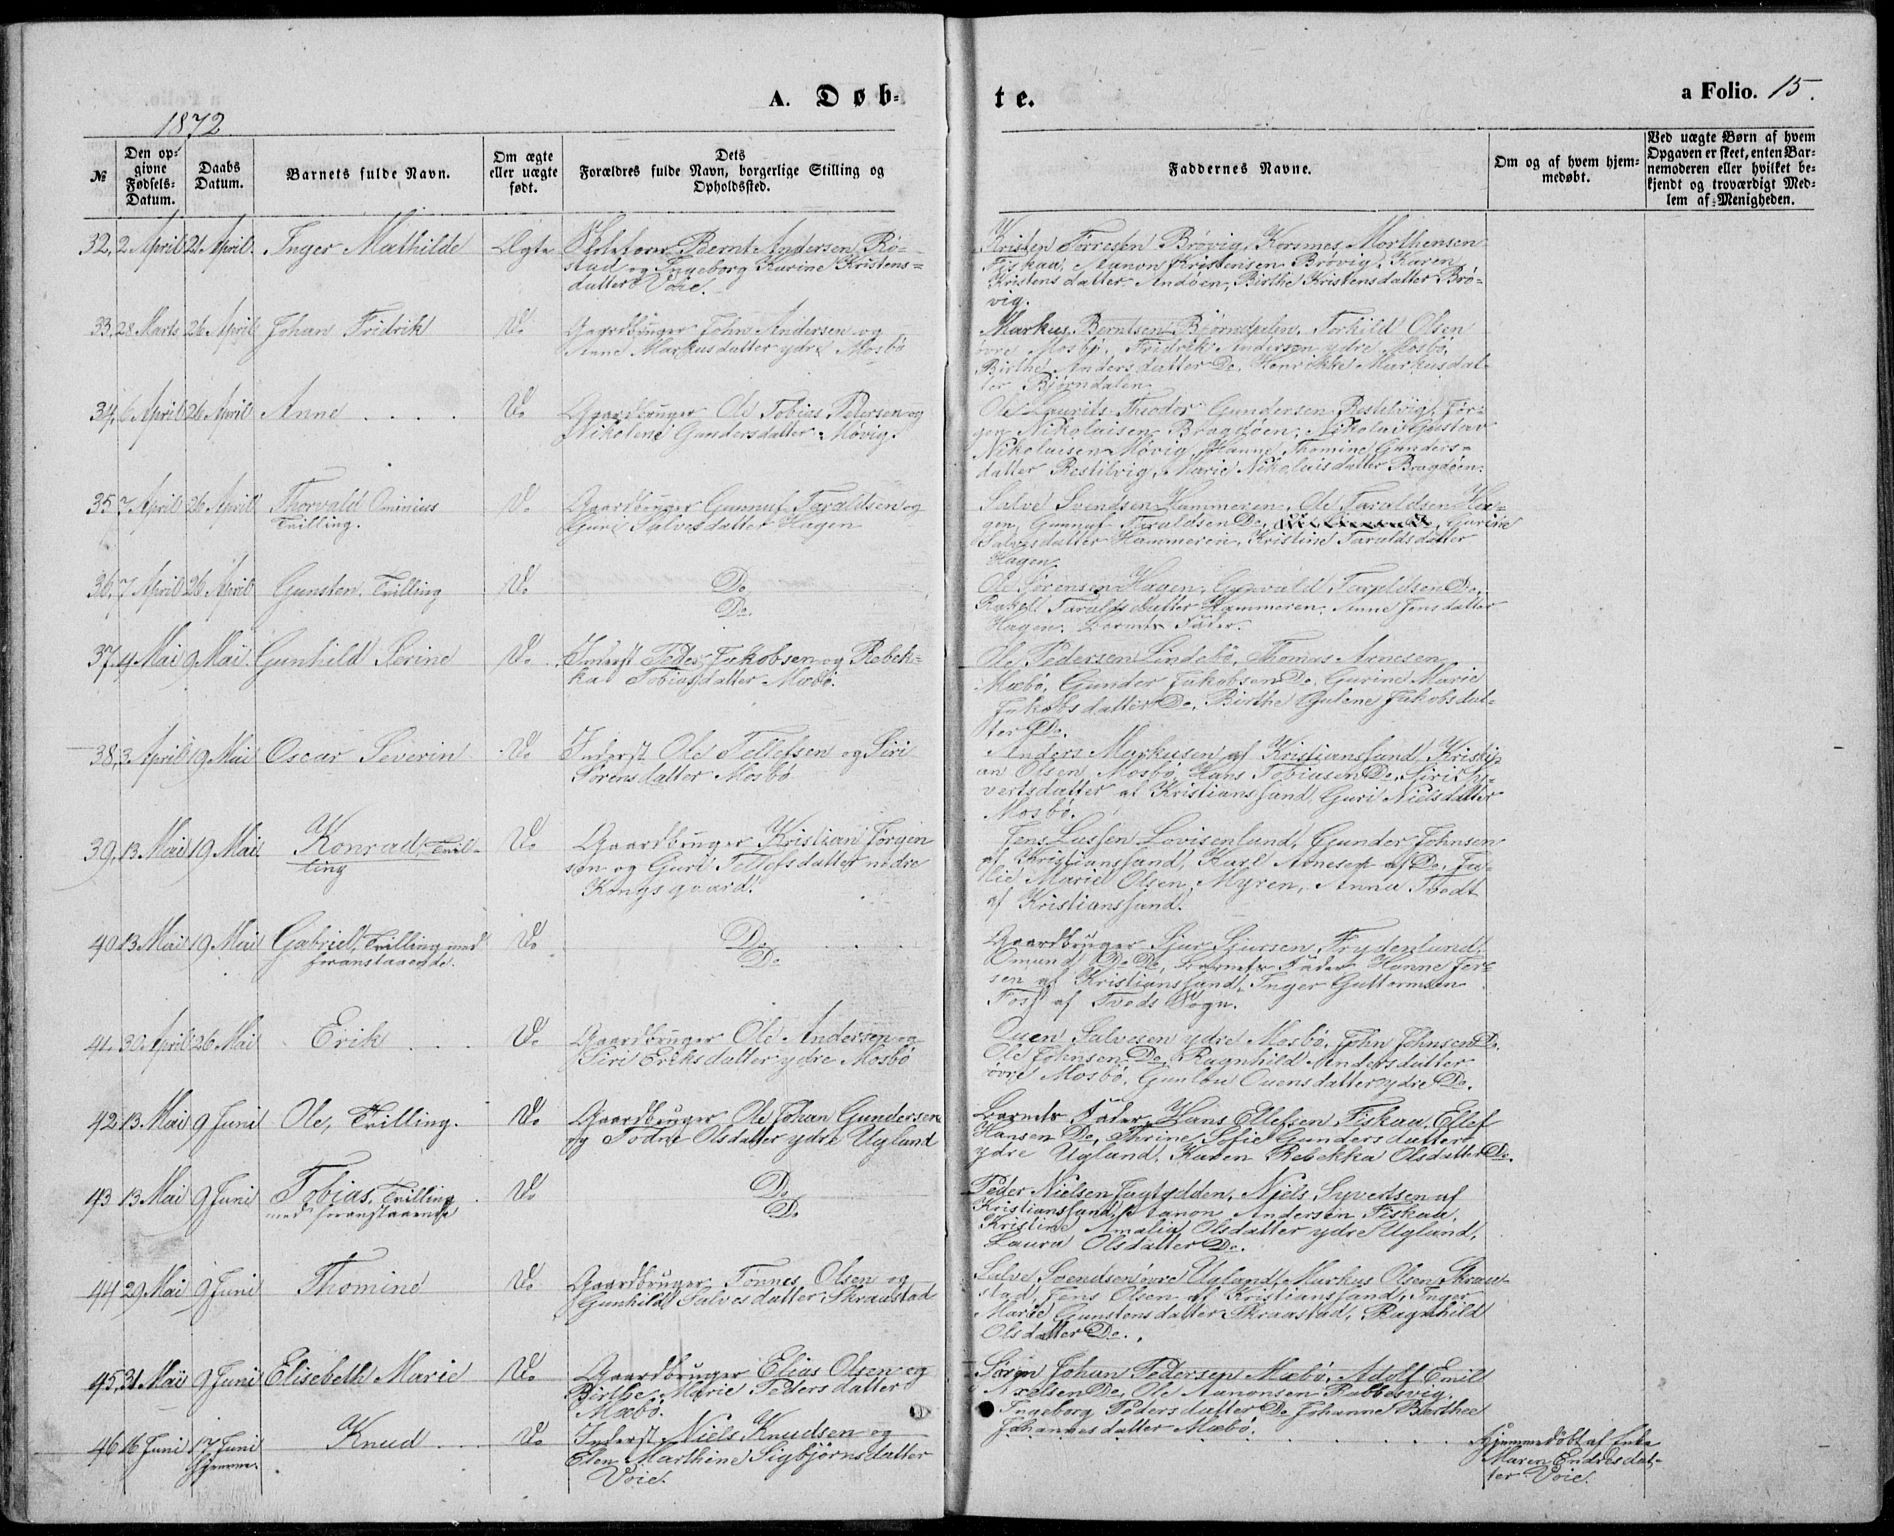 A. Døb-
te.
a Folio. 15.
1872
№
Den op-
givne
Fødsels-
Datum.
Daabs
Datum.
Barnets fulde Navn.
Om ægte
eller uægte
født.
Dets
Forældres fulde Navn, borgerlige Stilling og
Opholdssted.
Faddernes Navne.
Om og af hvem hjem-
medøbt.
Ved uægte Børn af hvem
Opgaven er skeet, enten Bar-
nemoderen eller hvilket be-
kjendt og troværdigt Med-
lem af Menigheden.
32, 2 April 21 April. Inger Mathilde Ægte Bernt Andersen Rø-
stad og Ingeborg Karine Kristens-
datter Voie.
Kristen Brøvig, Morthensen
Fiskaa, Aanon Kristensen Brøvig, Karen
Kristensdatter Andøen, Birthe Kristensdatter Brø-
vig.
33, 28 Marts 26 April Johan Fridrik Do Gaardbruger John Andersen og
Anne Markusdatter ydre Mosbø
Markus Berntsen Bjørndalen, Torkild Olsen
øvre Mosbø, Fridrik Andersen ydre Mosbø,
Birthe Andersdatter Do, Henrikke Markusdat-
ter Bjørndalen
34, 6 April 26 April Anne . . . . Do Gaardbruger Ole Tobias Petersen og
Nikolene Gundersdatter Møvig.
Ole Laurits Theodor Gundersen Restelvig, Jør-
gen Nikolaisen Bragdøen, Nikolai Gustav
Nikolaisen Møvig, Hanne Thomine Gunders-
datter Restilvig, Marie Nikolaisdatter Bragdøen.
35 7 April 26 April Thorvald Ominius Do Gaardbruger Gunnuf Taraldsen og
Tvilling. Guri Salvesdatter Hagen
Salve Svendsen Hammeren, Ole Taraldsen Ha-
gen, Gunnuf Taraldsen Do, Gurine
Salvesdatter Hammeren, Kristine Taraldsdatter
Hagen.
36, 7 April 26 April Gunsten, Tvilling Do Do
Do
Ole Sørensen Hagen, Gunvald Taraldsen Do,
Rakel Taraldsdatter Hammeren, Anne Jensdatter
Hagen. Barnets Fader.
37. 4 Mai 9 Mai. Gunhild Serine Do Inderst Peder Jakobsen og Rebek-
ka Tobiasdatter Mæbø.
Ole Pedersen Lindebø, Thomas Arnesen
Mæbø, Gunder Jakobsen Do, Gurine Marie
Jakobsdatter Do, Birthe Gulene Jakobsdat-
ter Do.
38, 3 April 19 Mai Oscar Severin Do Inderst Ole Tellefsen og Siri
Sørensdatter Mosbø
Anders Markusen af Kristianssand, Kristi-
an Olsen Mosbø, Hans Tobiasen Do, Siri Sy-
vertsdatter af Kristianssand, Guri Nielsdatter
Mosbø.
39, 13 Mai 19 Mai Konrad, Tvil-
ling Do Gaardbruger Kristian Jørgen
sen og Guri Tellefsdatter nedre
Kongsgaard.
Jens Lassen Lovisenlund, Gunder Johnsen
af Kristianssand, Karl Arnesen af Do, Ju-
lie Marie Olsen, Myren, Anna Tvedt
af Kristianssand.
40 13 Mai 19 Mai Gabriel, Tvilling med Do Do
foranstaaende. Do
Gaardbruger Sjur Sjursen Frydenlund,
Omund Do Do, Barnets Fader, Hanne
sen af Kristianssand, Inger Guttormsen
Foss af Tveds Sogn.
41, 30 April 26 Mai Erik . . . Do Gaardbruger Ole Andersen og
Siri Eriksdatter ydre Mosbø
Ouen Salvesen ydre Mosbø, John Johnsen Do,
Ole Johnsen Do, Ragnhild Andersdatter
øvre Mosbø, Gunlou Ouensdatter ydre Do.
42, 13 Mai 9 Juni Ole, Tvilling. Do Gaardbruger Ole Johan Gundersen
og Todne Olsdatter ydre Ugland
Barnets Fader, Hans Ellefsen Fiskaa, Ellef
Hansen Do, Thrine Sofie Gundersdatter
ydre Ugland, Karen Rebekka Olsdatter Do.
43 13 Mai 9 Juni Tobias, Tvilling Do Do
med foranstaaende Do
Peder Nielsen Jagtødden, Niels Syvertsen af
Kristianssand, Aanon Andersen Fiskaa,
Kristine Amalia Olsdatter ydre Ugland,
Laura Olsdatter Do.
44 29 Mai 9 Juni Thomine Do Gaardbruger Tønnes Olsen og
Gunhild Salvesdatter Skraastad
Salve Svendsen øvre Ugland, Markus Olsen Skraa-
stad, Jens Olsen af Kristianssand, Inger
Marie Gunstensdatter Skraastad, Ragnhild
Olsdatter Do.
45, 31 Mai 9 Juni Elisebeth Marie Do Gaardbruger Elias Olsen og
Birthe Marie Pedersdatter
Mæbø.
Søren Johan Pedersen Mæbø, Adolf Emil
Axelsen Do, Ole Aanonsen Rabbesvig,
Ingeborg Pedersdatter Do, Johanne Berthea
Johannesdatter Mæbø.
46 16 Juni 17 Juni Knud . . Do Inderst Niels Knudsen og
hjemme. Elen Marthine Sigbjørnsdatter
Voie.
Hjemmedøbt af Enke
Maren Endresdat-
ter Voie.